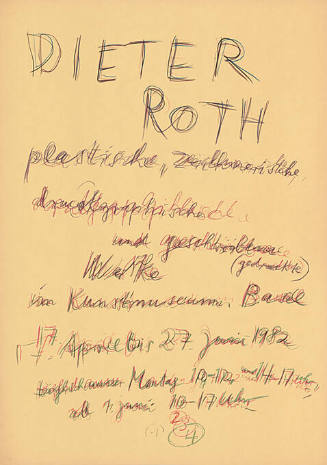 DIETER
ROTH
plastische, zeichnerische,
druckgraphische
und geschriebene
Werke (gedruckte)
im Kunstmuseum Basel
17. April bis 27. Juni 1982
Montag 10-12 und 14-17 Uhr,
ab 1. Juni 10-17 Uhr